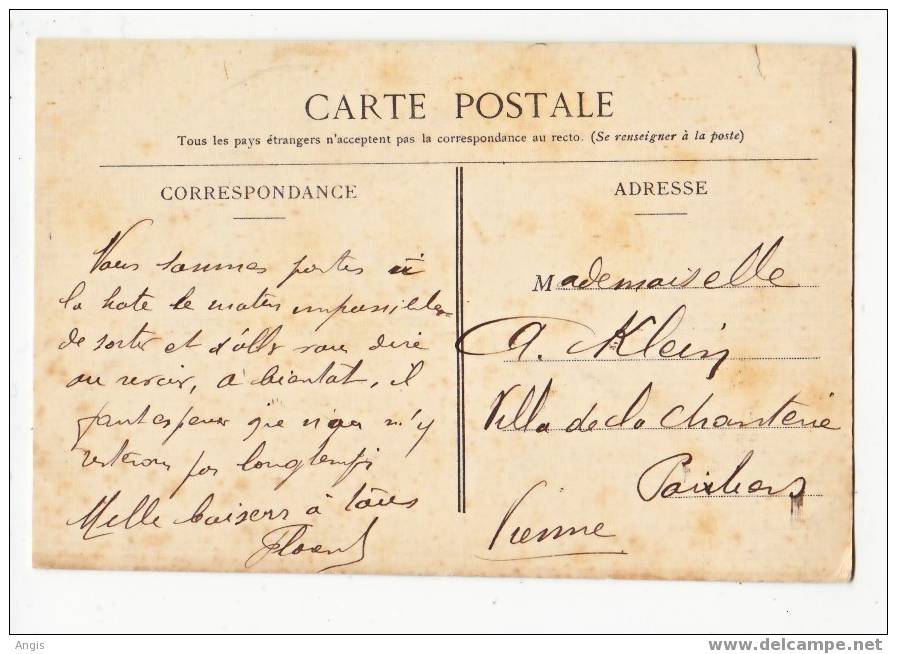 CARTE POSTALE
Tous les pays étrangers n'acceptent pas la correspondance au recto. (Se renseigner à la poste)
CORRESPONDANCE
Nous sommes partis
la hate le matin impossible
de sortir et d'aller vous dire
au revoir, a bientat, il
faut esperer que nous n'y
resterons pas longtemps
Mille baisers à tous
ADRESSE
Mademoiselle
A. Klein
Villa de la Chanterie
Poitiers
Vienne
Angis
www.delcampe.net